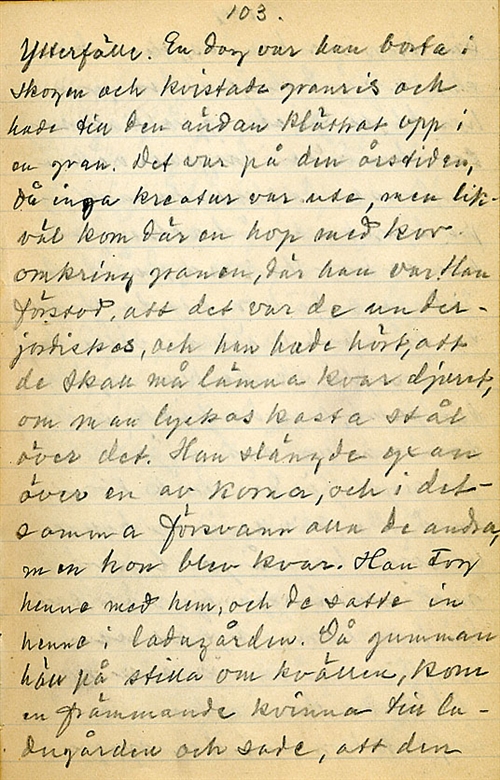 103.
Ytterfälle. En dag var han borta i
skogen och kvistade granris och
hade till den ändan klättrat opp i
en gran. Det var på den årstiden,
då inga kreatur var ute, men lik-
väl kom där en hop med kor
omkring granen, där han var. Han
förstod, att det var de under-
jordiskas, och han hade hört, att
de skall må lämna kvar djuret,
om man lyckas kasta stål
över det. Han slängde yxan
över en av korna, och i det-
samma försvann alla de andra,
men hon blev kvar. Han tog
henne med hem, och de satte in
henne i ladugården. Då gumman
höll på stilla om kvällen, kom
en främmande kvinna till la-
dugården och sade, att den